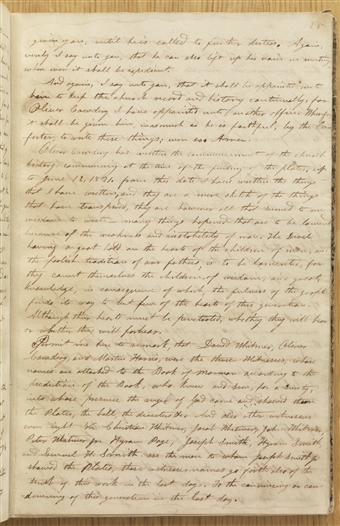 given you, until he is called to further duties. Again,
verily I say unto you, that he can also lift up his voice in meeting
when ever it shall be expedient.
And again, I say unto you, that it shall be appointed unto
to keep the church record and history continually; for
Oliver Cowdery I have appointed unto another office. Wherefore
it shall be given him, inasmuch as he is faithful, by the Com
forter, to write these things; even so. Amen.
Oliver Cowdery has written the commencement of the church
history, commencing at the time of the finding of the plates, up
to June 12, 1831. From this date I have written the things
that I have written, and they are a mere sketch of the things
that have transpired, they are however all that seemed to me
wisdom to write many things happened that are to be
because of the weakness and of man. The Devil
having a great hold on the hearts of the children of men, and
the foolish traditions of our fathers, is to be lamented, for
they count themselves the children of wisdom, and great
knowledge, in consequence of which, the fulness of the gospel
finds its way to but few of the hearts of this generation.
Although their hearts must be penetrated, whether they will hear
or whether they will forbear.
Permit me here to remark, that David Whitmer, Oliver
Cowdery, and Martin Harris, were the three Witnesses, whose
names are attached to the Book of Mormon according to the
prediction of the Book, who knew and saw, for a surety,
into whose presence the angel of God came and showed them
the plates, the ball, the directors &c. And also other witnesses
even eight Viz. Christian Whitmer, Jacob Whitmer, John Whitmer,
Peter Whitmer Jr. Hyram Page, Joseph Smith, Hyrum Smith,
and Samuel H. Smith. are the men to whom Joseph Smith Jr
showed the plates, these witnesses names go forth also of the
truth of this work in the last days. To the convincing or con
demning of this generation in the last day.